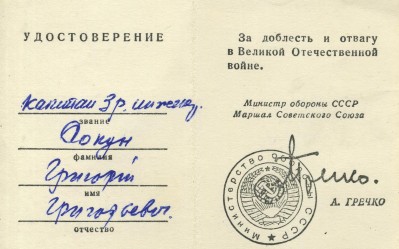 УДОСТОВЕРЕНИЕ
капитан 3 р. инженер.
звание
Сокун
фамилия
Григорій
имя
Григорьевич
отчество
За доблесть и отвагу
в Великой Отечественной
войне.
Министр обороны СССР
Маршал Советского Союза
Министерство обороны СССР
А. ГРЕЧКО